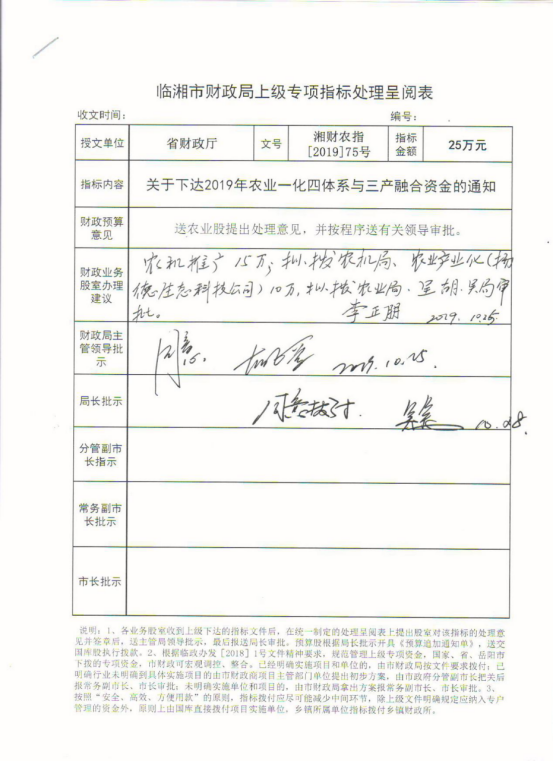 临湘市财政局上级专项指标处理呈阅表
收文时间： 编号：
授文单位 省财政厅 文号 湘财农指[2019]75号 指标金额 25万元
指标内容 关于下达2019年农业一化四体系与三产融合资金的通知
财政预算意见 送农业股提出处理意见，并按程序送有关领导审批。
财政业务股室办理建议
农机推广15万，拟拨农机局、农业产业化(杨
德生态科技公司)10万，拟拨农业局。呈胡、吴局审
批。 李正朋 2019.10.25
财政局主管领导批示 同意. 2019.10.25.
局长批示 同意拨付. 10.28.
分管副市长指示
常务副市长批示
市长批示
说明：1、各业务股室收到上级下达的指标文件后，在统一制定的处理呈阅表上提出股室对该指标的处理意
见并签章后，送主管局领导批示，最后报送局长审批。预算股根据局长批示开具《预算追加通知单》，送交
国库股执行拨款。2、根据临政办发【2018】1号文件精神要求，规范管理上级专项资金，国家、省、岳阳市
下拨的专项资金，市财政可宏观调控、整合。已经明确实施项目和单位的，由市财政局按文件要求拨付；已
明确行业未明确到具体实施项目的由市财政商项目主管部门单位提出初步方案，由市政府分管副市长把关后
报常务副市长、市长审批；未明确实施单位和项目的，由市财政局拿出方案报常务副市长、市长审批。3、
按照“安全、高效、方便用款”的原则，指标拨付应尽可能减少中间环节，除上级文件明确规定应纳入专户
管理的资金外，原则上由国库直接拨付项目实施单位，乡镇所属单位指标拨付乡镇财政所。